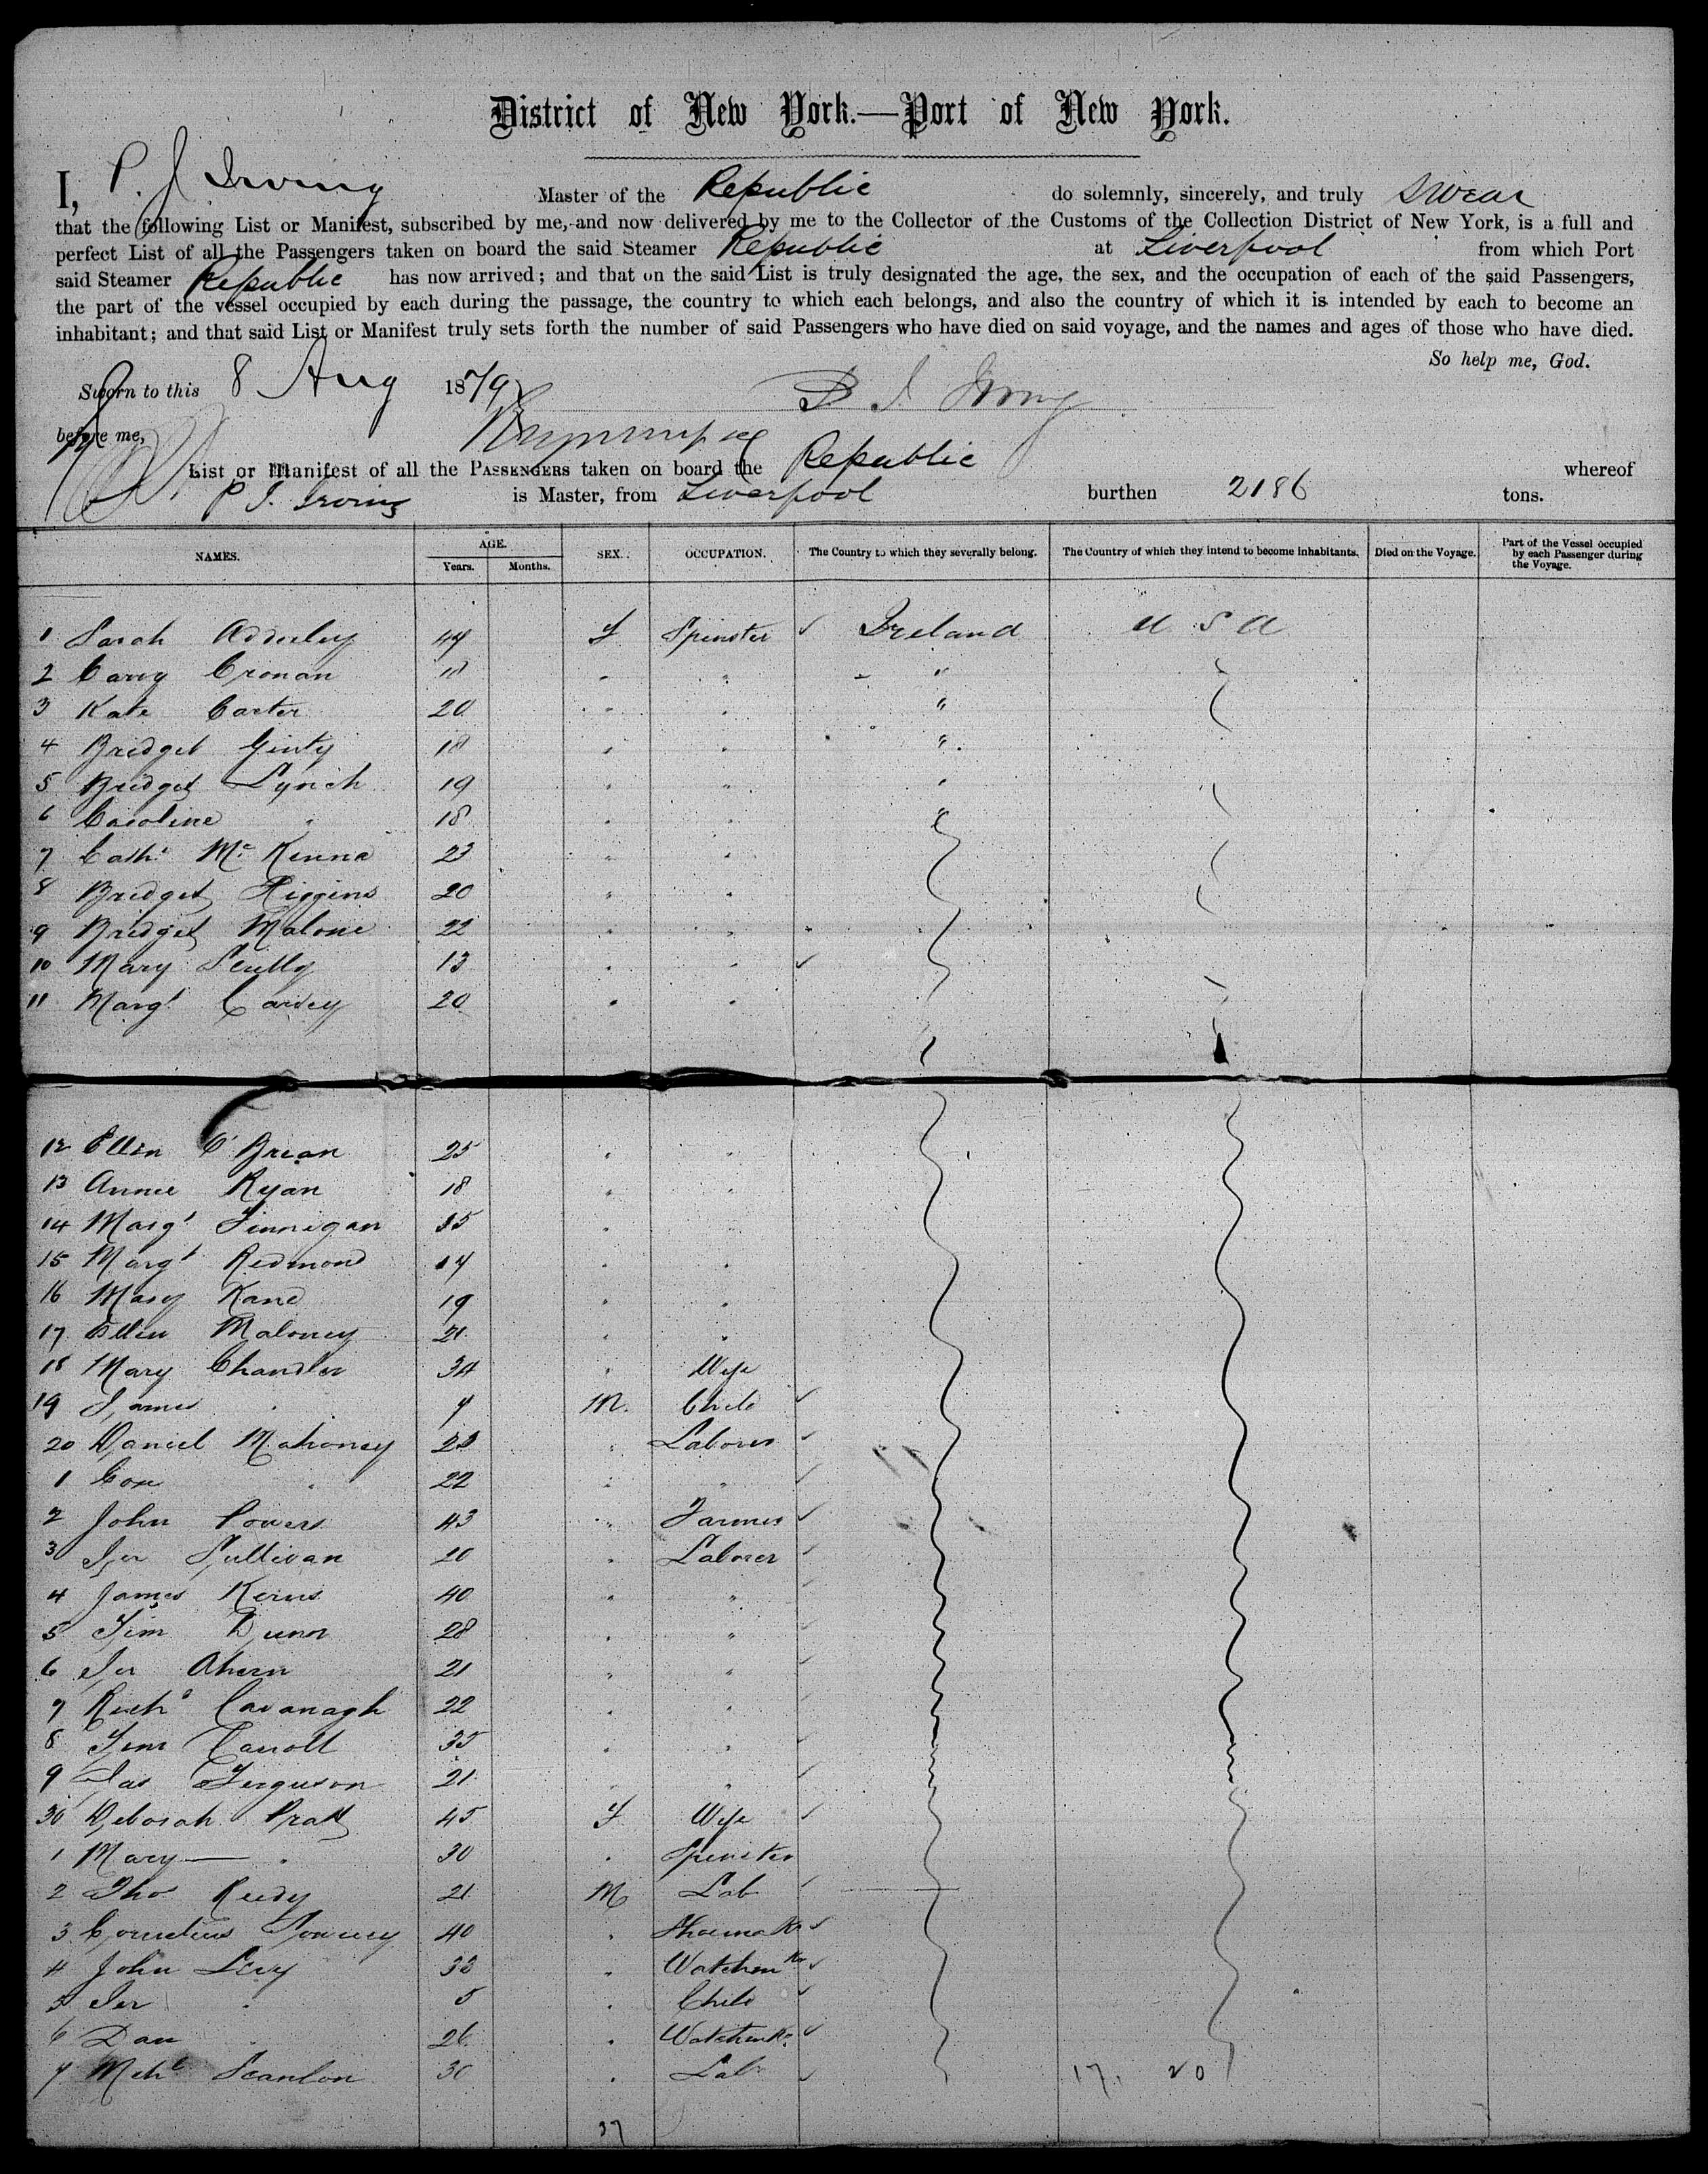 District of New York.—Port of New York.
I, P. J Irving Master of the Republic do solemnly, sincerely, and truly swear
that the following List or Manifest, subscribed by me, and now delivered by me to the Collector of the Customs of the Collection District of New York, is a full and
perfect List of all the Passengers taken on board the said Steamer Republic at Liverpool from which Port
said Steamer Republic has now arrived; and that on the said List is truly designated the age, the sex, and the occupation of each of the said Passengers,
the part of the vessel occupied by each during the passage, the country to which each belongs, and also the country of which it is intended by each to become an
inhabitant; and that said List or Manifest truly sets forth the number of said Passengers who have died on said voyage, and the names and ages of those who have died.
So help me, God.
Sworn to this 8 Aug 1879 P J Irving
before me,
List or Manifest of all the PASSENGERS taken on board the Republic whereof
P J. Irving is Master, from Liverpool burthen 2186 tons.
NAMES. AGE. Years. Months. SEX. OCCUPATION. The Country to which they severally belong. The Country of which they intend to become inhabitants. Died on the Voyage. Part of the Vessel occupied by each Passenger during the Voyage.
1 Sarah Adderley 44 F Spinster ✓ Ireland U S A
2 Carry Cronan 18 " " "
3 Kate Carter 20 " " "
4 Bridget Ginty 18 " " "
5 Bridget Lynch 19 " " "
6 Caroline " 18 " " "
7 Cathe McKenna 23 " "
8 Bridget Higgins 20 " "
9 Bridget Malone 22 " "
10 Mary Scully 13 " " ✓
11 Margt 20 " "
12 Ellen O'Brian 25 " "
13 Annie Ryan 18 " "
14 Margt Finnegan 35 "
15 Margt Redmond 14 " "
16 Mary Kane 19 " "
17 Ellen Maloney 21 " "
18 Mary Chandler 34 " Wife
19 James " M. Child ✓
20 Daniel Mahoney 23 " Laborer ✓
1 Con " 22 " " ✓
2 John Powers 43 " Farmer ✓
3 Jer Sullivan 20 " Laborer ✓
4 James Kerns 40 " " ✓
5 Tim Dunn 28 " " ✓
6 Jer Ahern 21 " " ✓
7 Richd Cavanagh 22 " " ✓
8 Tim Carroll 35 " " ✓
9 Jas Ferguson 21 " " ✓
30 Deborah Pratt 45 F Wife ✓
1 Mary " 30 " Spinster
2 Tho Reidy 21 M Lab ✓
3 Cornelius 40 " Shoemakr ✓
4 John Levy 33 " Watchmkr ✓
5 Jer " 5 " Child ✓
6 Dan " 26 " Watchmkr ✓
7 Michl Scanlon 30 " Lab ✓ 17. 20
37